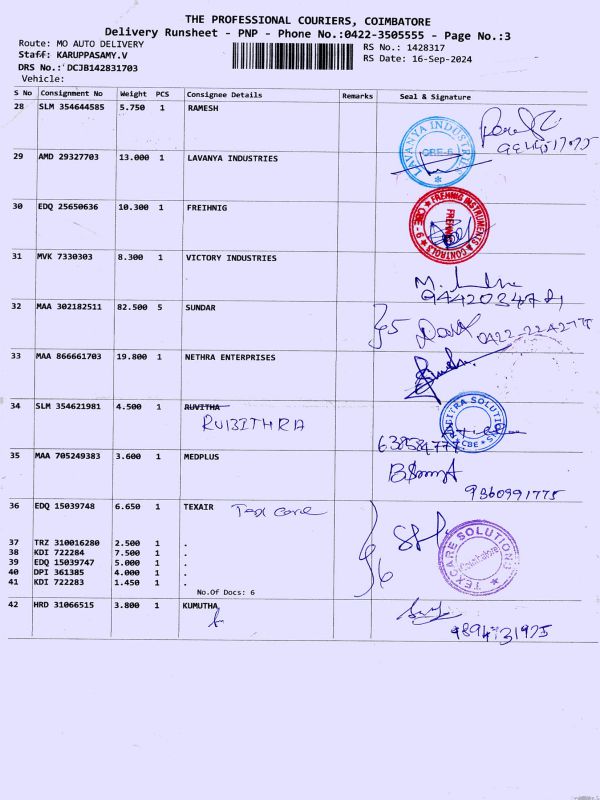 THE PROFESSIONAL COURIERS, COIMBATORE
Delivery Runsheet - PNP - Phone No.:0422-3505555 - Page No.:3
Route: MO AUTO DELIVERY
RS No.: 1428317
Staff: KARUPPASAMY.V
RS Date: 16-Sep-2024
DRS No.: DCJB142831703
Vehicle:
S No Consignment No Weight PCS Consignee Details Remarks Seal & Signature
28 SLM 354644585 5.750 1 RAMESH
29 AMD 29327703 13.000 1 LAVANYA INDUSTRIES
LAVANYA INDUSTRIES CBE-6
30 EDQ 25650636 10.300 1 FREIHNIG
31 MVK 7330303 8.300 1 VICTORY INDUSTRIES
32 MAA 302182511 82.500 5 SUNDAR
33 MAA 866661703 19.800 1 NETHRA ENTERPRISES
34 SLM 354621981 4.500 1 RUVITHA
RUBITHRA
35 MAA 705249383 3.600 1 MEDPLUS
9360991775
36 EDQ 15039748 6.650 1 TEXAIR Tex care
37 TRZ 310016280 2.500 1 .
38 KDI 722284 7.500 1 .
39 EDQ 15039747 5.000 1 .
40 DPI 361385 4.000 1 .
41 KDI 722283 1.450 1 .
6
TEXCARE SOLUTIONS Coimbatore
No.Of Docs: 6
42 HRD 31066515 3.800 1 KUMUTHA